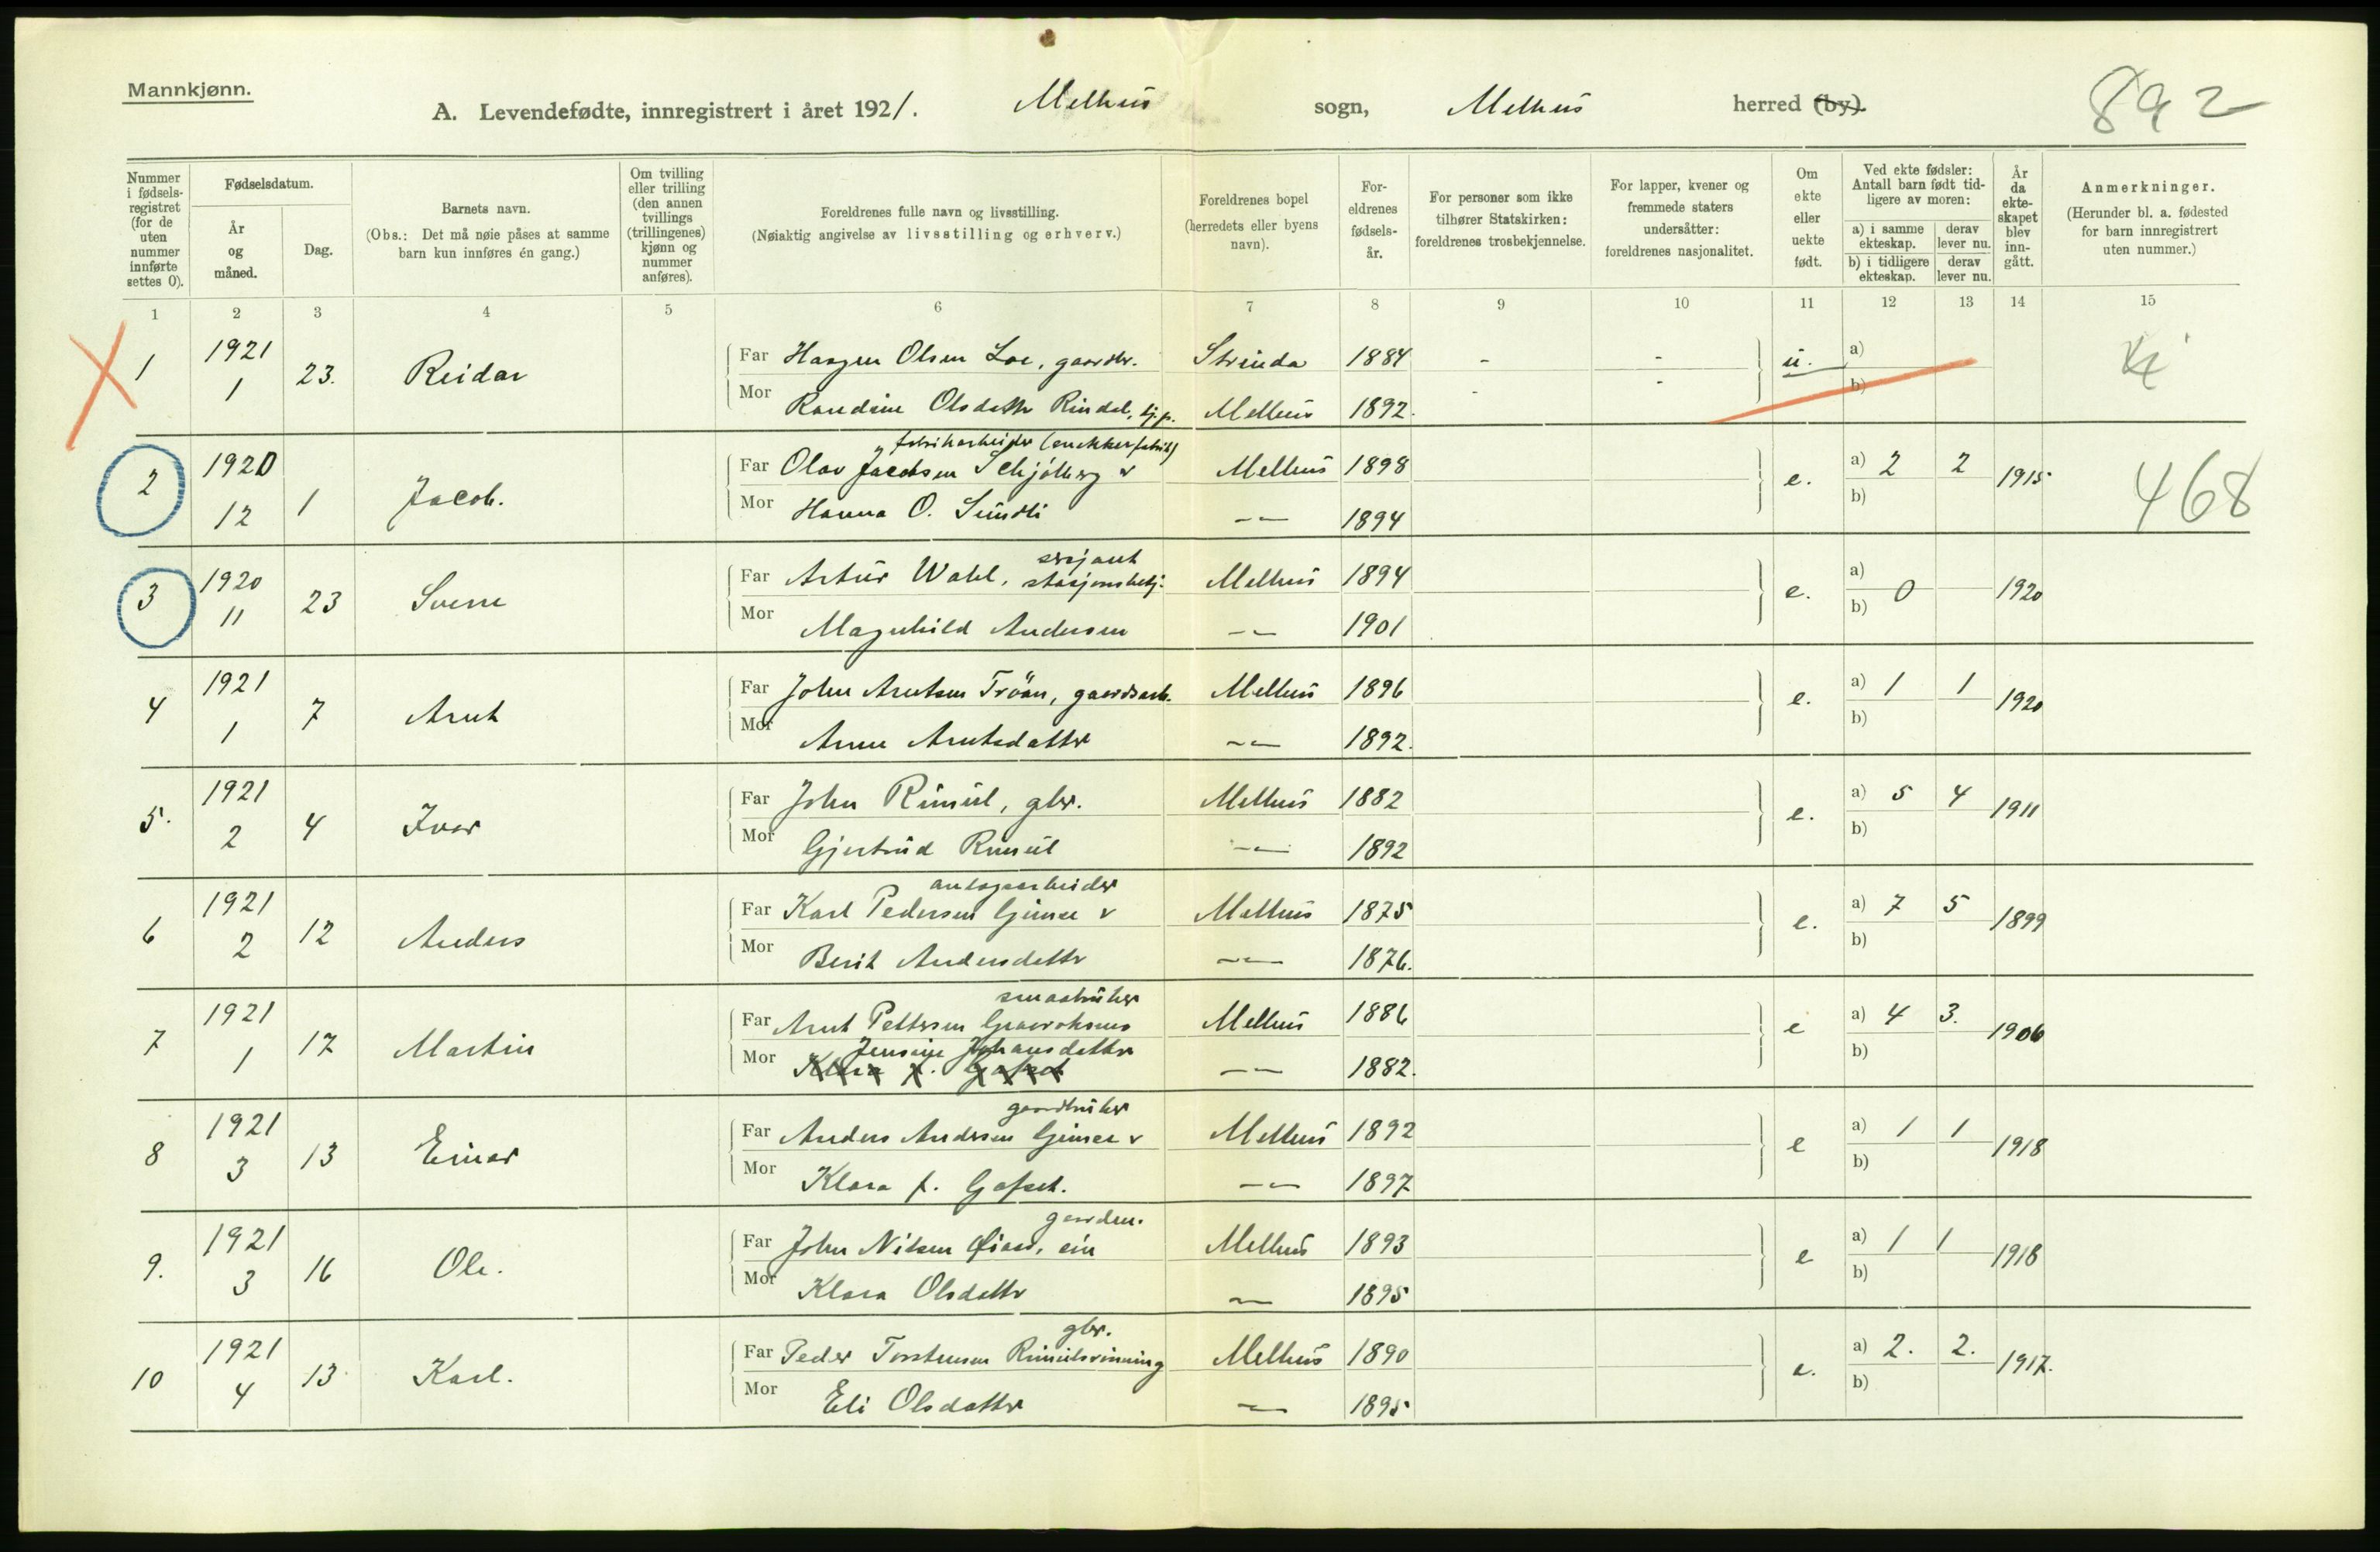 Mannkjønn.
892
A. Levendefødte, innregistrert i året 1921. Melhus sogn, Melhus herred (by).
Nummer i fødsels-registret (for de uten nummer innførte settes 0).
Fødselsdatum.
År og måned.
Dag.
Barnets navn.
(Obs.: Det må nøie påses at samme barn kun innføres én gang.)
Om tvilling eller trilling (den annen tvillings (trillingenes) kjønn og nummer anføres).
Foreldrenes fulle navn og livsstilling.
(Nøiaktig angivelse av livsstilling og erhverv.)
Foreldrenes bopel (herredets eller byens navn).
For-eldrenes fødsels-år.
For personer som ikke tilhører Statskirken: foreldrenes trosbekjennelse.
For lapper, kvener og fremmede staters undersåtter: foreldrenes nasjonalitet.
Om ekte eller uekte født.
Ved ekte fødsler: Antall barn født tid-ligere av moren:
a) i samme ekteskap. derav lever nu.
b) i tidligere ekteskap. derav lever nu.
År da ekte-skapet blev inn-gått.
Anmerkninger.
(Herunder bl. a. fødested for barn innregistrert uten nummer.)
1 2 3 4 5 6 7 8 9 10 11 12 13 14 15
1 1921 1 23. Reidar
Far Haagen Olsen Loe, gaardbr. Strinda 1884 - - u. a)
Mor Randine Olsdatter Rindal, tj.p. Melhus 1892. - - b)
2 1920 12 1 Jacob.
fabrikarbeider
Far Olav Jacobsen Schjölberg v Melhus 1898 e. a) 2 2 1915 468
Mor Hanna O. Sundli -"- 1894 b)
3 1920 11 23 Sverre
sersjant
Far Artur Wahl, stasjonsbetj. Melhus 1894 e. a) 0 1920
Mor Magnhild Andersen -"- 1901 b)
4 1921 1 7 Arnt
Far John Arntsen Tröan, gaardsarb. Melhus 1896 e. a) 1 1 1920
Mor Anne Arntsdatter -"- 1892. b)
5. 1921 2 4 Ivar
Far John Rimul, gbr. Melhus 1882 e. a) 5 4 1911
Mor Gjertrud Rimul -"- 1892 b)
6 1921 2 12 Anders
anlegsarbeider
Far Karl Pedersen Gimse v Melhus 1875 e. a) 7 5 1899
Mor Berit Andersdatter -"- 1876. b)
7 1921 1 17 Martin
smaabruker
Far Arnt Pettersen Melhus 1886 e a) 4 3. 1906
Jensine Johansdatter
Mor Klara f. Gafset -"- 1882. b)
8 1921 3 13 Einar
gaardbruker
Far Anders Andersen Gimse v Melhus 1892 e a) 1 1 1918
Mor Klara f. Gafset. -"- 1897 b)
9. 1921 3 16 Ole.
gaarden.
Far John Nilsen Öiaas, ein Melhus 1893 e a) 1 1 1918
Mor Klara Olsdatter -"- 1895 b)
10 1921 4 13 Karl.
gbr.
Far Peder Torstensen Rimulsvinning Melhus 1890 e. a) 2. 2. 1917.
Mor Eli Olsdatter -"- 1895 b)